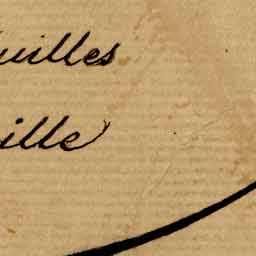 uilles
ille